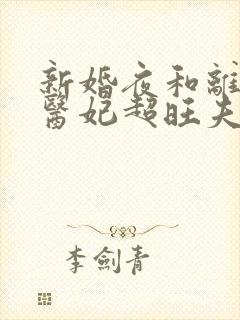 新婚夜和離
醫妃超旺夫
李劍青